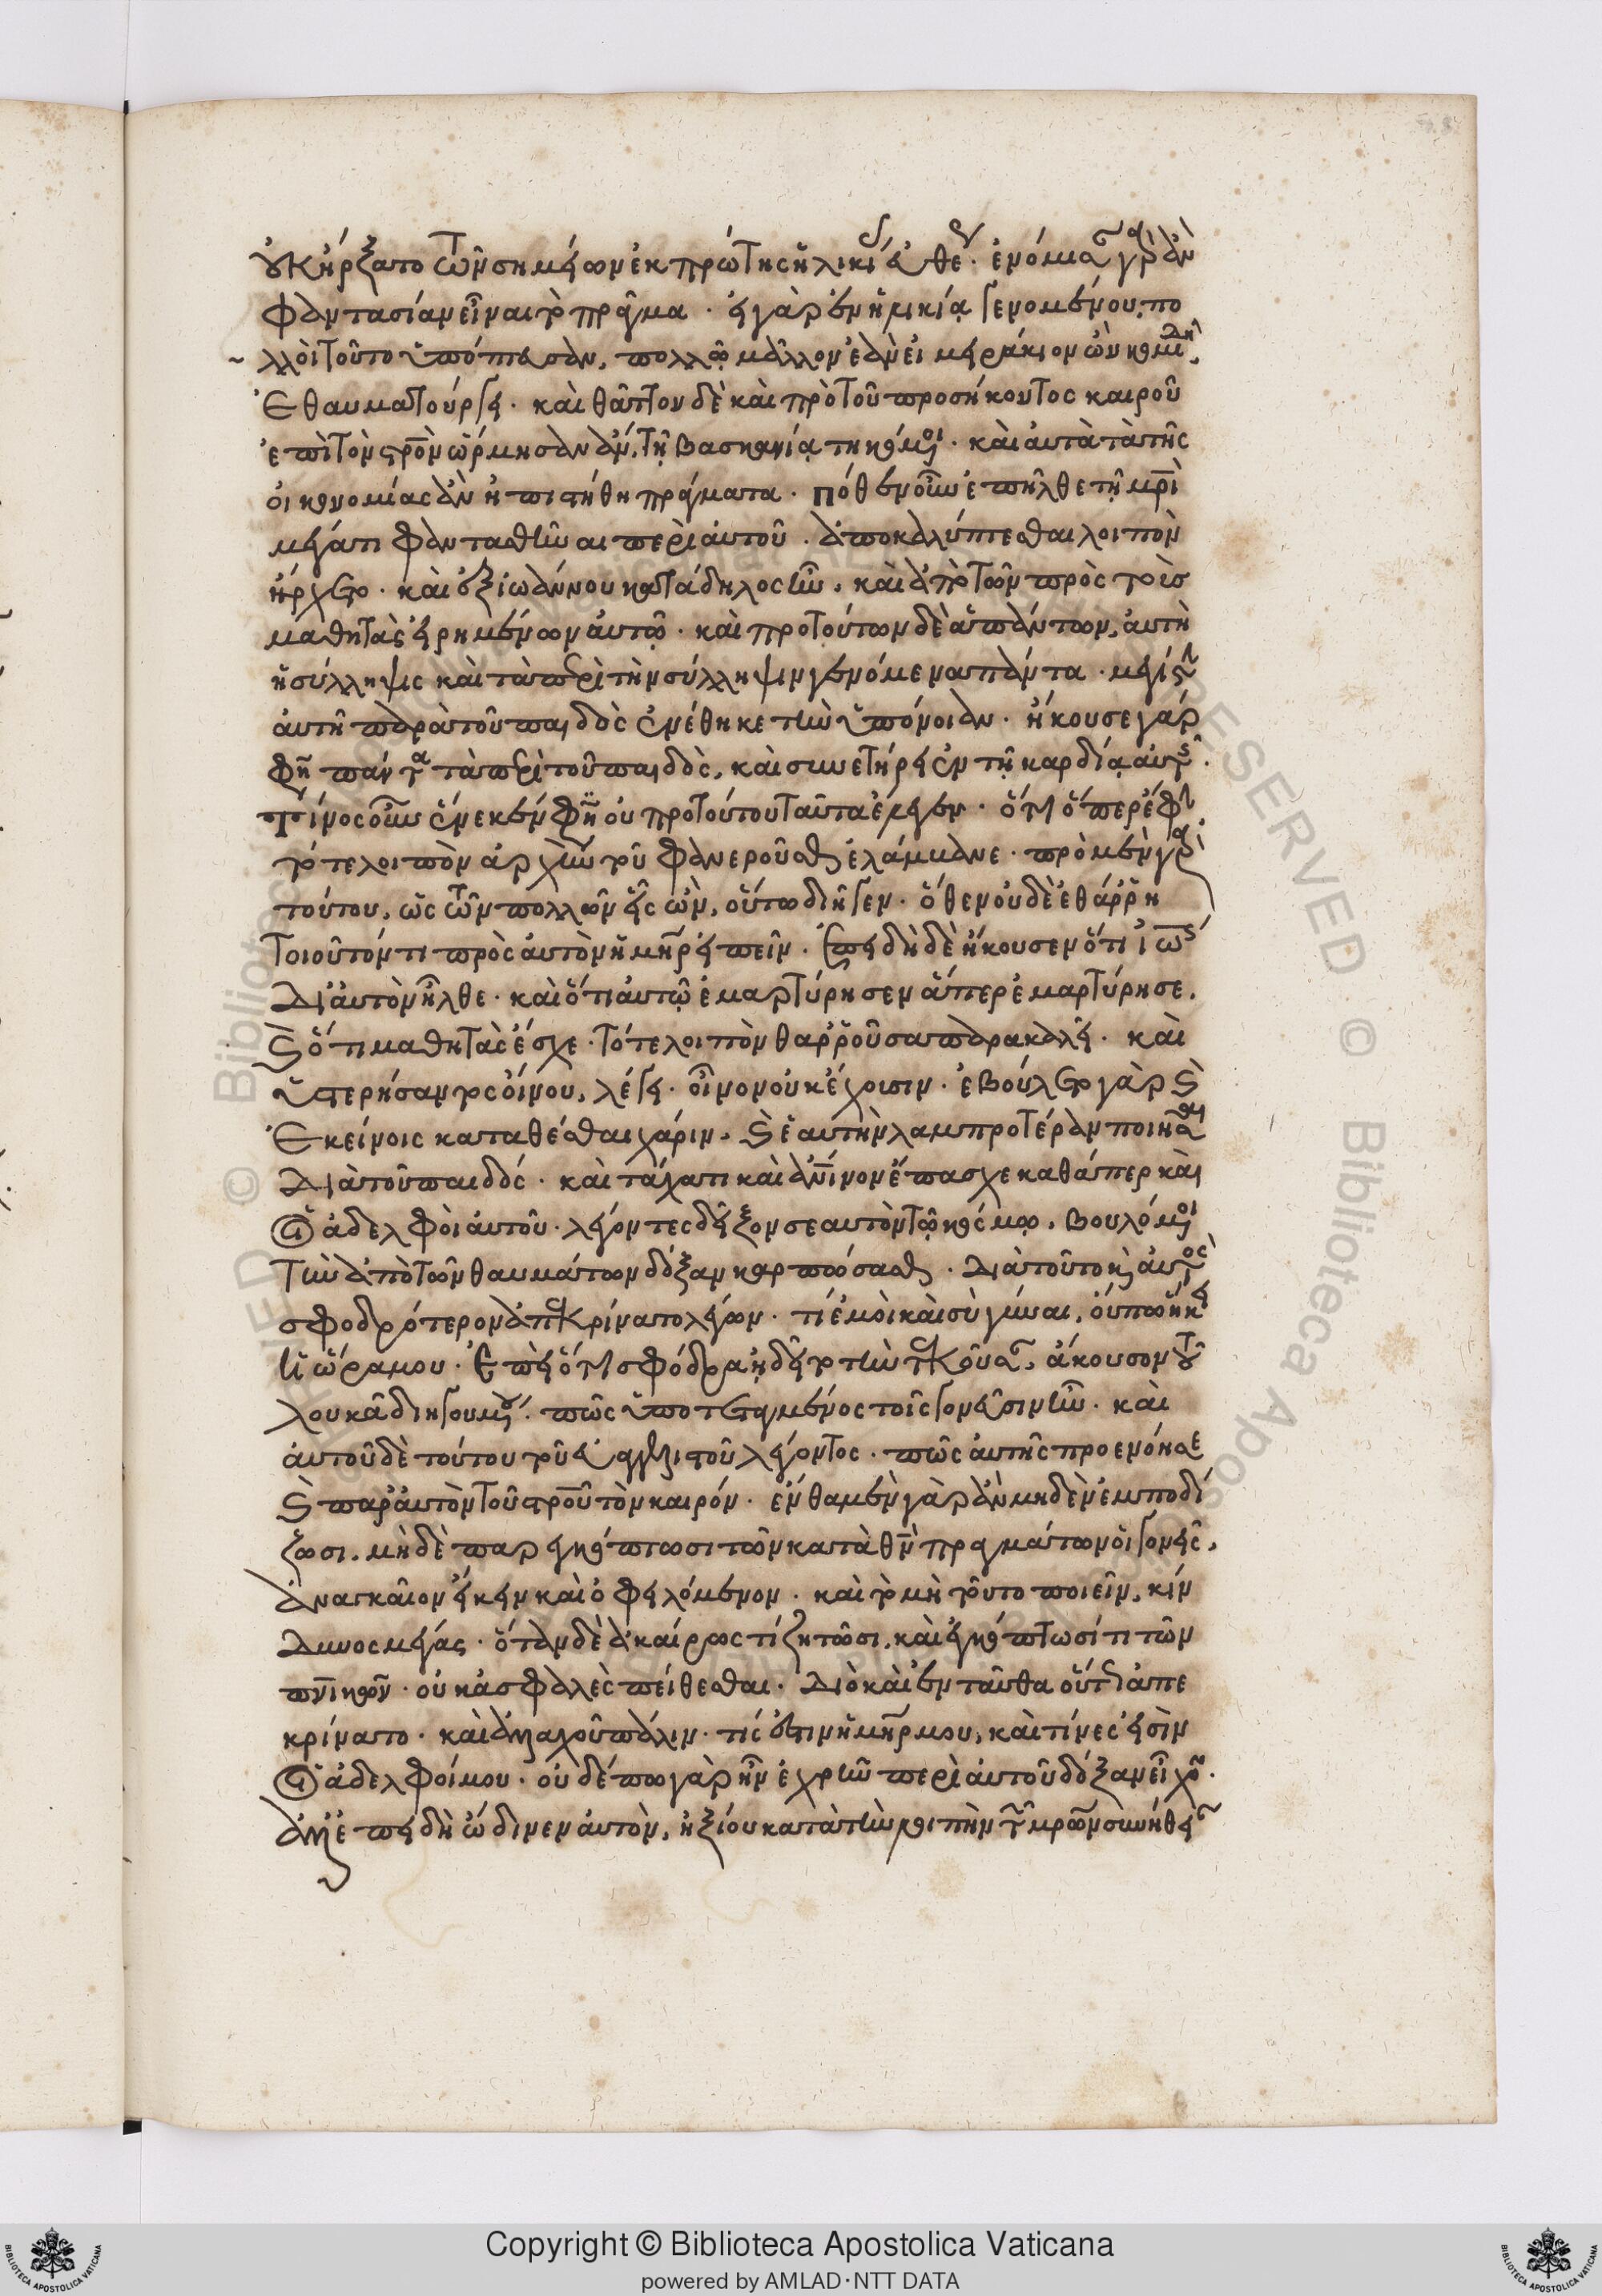 οὐκ ἤρξατο τῶν σημείων ἐκ πρώτης ἡλικίας εὐθέως· ἐνόμισαν γὰρ ἂν
φαντασίαν εἶναι τὸ πρᾶγμα· εἰ γὰρ ἐν ἡλικίᾳ γενομένου, πο
λλοὶ τοῦτο ὑπόπτευσαν, πολλῷ μᾶλλον ἐὰν εἰ μειράκιον ὢν κομιδῆ
ἐθαυματούργει· καὶ θᾶττον δὲ καὶ πρὸ τοῦ προσήκοντος καιροῦ
ἐπὶ τὸν σρον ὥρμησαν ἄν, τῇ βασκανίᾳ τηκόμενοι· καὶ αὐτὰ τὰ τῆς
οἰκονομίας ἂν ἠπιστήθη πράγματα· πόθεν οὖν ἐπῆλθε τῇ μρὶ
μέγα τι φαντασθῆναι περὶ αὐτοῦ· ἀποκαλύπτεσθαι λοιπὸν
ἤρχετο· καὶ ἐξ ἰωάννου κατάδηλος ἦν, καὶ ἀπὸ τῶν πρὸς τοὺς
μαθητὰς εἰρημένων αὐτῷ· καὶ πρὸ τούτων δὲ ἁπάντων, αὐτὴ
ἡ σύλληψις καὶ τὰ περὶ τὴν σύλληψιν γενόμενα πάντα· μεγίστην
αὐτῇ παρὰ τοῦ παιδὸς ἐνέθηκε τὴν ὑπόνοιαν· ἤκουσε γάρ
φη πάντα τὰ περὶ τοῦ παιδὸς, καὶ συνετήρει ἐν τῇ καρδίᾳ αὐτῆς.
Τίνος οὖν ἕνεκεν φη οὐ πρὸ τούτου ταῦτα ἔλεγεν· ὅτι ὅπερ ἔφην
τότε λοιπὸν ἀρχὴν τοῦ φανεροῦσθαι ἐλάμβανε· πρὸ μὲν γὰρ
τούτου, ὡς τῶν πολλῶν εἷς ὢν, οὕτω διῆγεν· ὅθεν οὐδὲ ἐθάρρει
τοιοῦτόν τι πρὸς αὐτὸν ἡ μηρ εἰπεῖν· ἐπειδὴ δὲ ἤκουσεν ὅτι ἰωάννης
δι' αὐτὸν ἦλθε· καὶ ὅτι αὐτῷ ἐμαρτύρησεν ἅπερ ἐμαρτύρησε,
καὶ ὅτι μαθητὰς ἔσχε· τότε λοιπὸν θαρροῦσα παρακαλεῖ· καὶ
ὑστερήσαντος οἴνου, λέγει· οἶνον οὐκ ἔχουσιν· ἐβούλετο γὰρ καὶ
ἐκείνοις καταθέσθαι χάριν· καὶ ἑαυτὴν λαμπροτέραν ποιῆσαι
διὰ τοῦ παιδός· καὶ τάχα τι καὶ ἀνινον ἔπασχε καθάπερ καὶ
οἱ ἀδελφοὶ αὐτοῦ· λέγοντες δεῖξον σεαυτὸν τῷ κόσμῳ, βουλόμενοι
τὴν ἀπὸ τῶν θαυμάτων δόξαν καρπώσασθαι· διὰ τοῦτο καὶ αὐτὸς
σφοδρότερον ἀπεκρίνατο λέγων· τί ἐμοὶ καὶ σὺ γύναι, οὔπω ἥκει
ἡ ὥρα μου· ἐπεὶ ὅτι σφόδρα ᾐδεῖτο τὴν τεκοῦσαν, ἄκουσον τοῦ
λουκᾶ διηγουμένου· πῶς ὑποτεταγμένος τοῖς γονεῦσιν ἦν· καὶ
αὐτοῦ δὲ τούτου τοῦ εὐαγγελιστοῦ λέγοντος· πῶς αὐτῆς προενόησε
καὶ παρ' αὐτὸν τοῦ σροῦ τὸν καιρόν· ἔνθα μὲν γὰρ ἂν μηδὲν ἐμποδί
ζωσι, μηδὲ παρεγκόπτωσι τῶν κατὰ θν πραγμάτων οἱ γονεῖς,
ἀναγκαῖον εἴκειν καὶ ὀφειλόμενον· καὶ τὸ μὴ τοῦτο ποιεῖν, κίν
δυνος μέγας· ὅταν δὲ ἀκαίρως τί ζητῶσι, καὶ ἐγκόπτωσί τι τῶν
πνικῶν· οὐκ ἀσφαλὲς πείθεσθαι· Διὸ καὶ ἐνταῦθα οὕτω ἀπε
κρίνατο· καὶ ἀλλαχοῦ πάλιν· τίς ἐστιν ἡ μηρ μου, καὶ τίνες εἰσὶν
οἱ ἀδελφοί μου· οὐδέπω γὰρ ἣν ἐχρῆν περὶ αὐτοῦ δόξαν εἶχον·
ἀλλ' ἐπειδὴ ὤδινεν αὐτὸν, ἠξίου κατὰ τὴν λοιπὴν τῶν μρων συνήθειαν